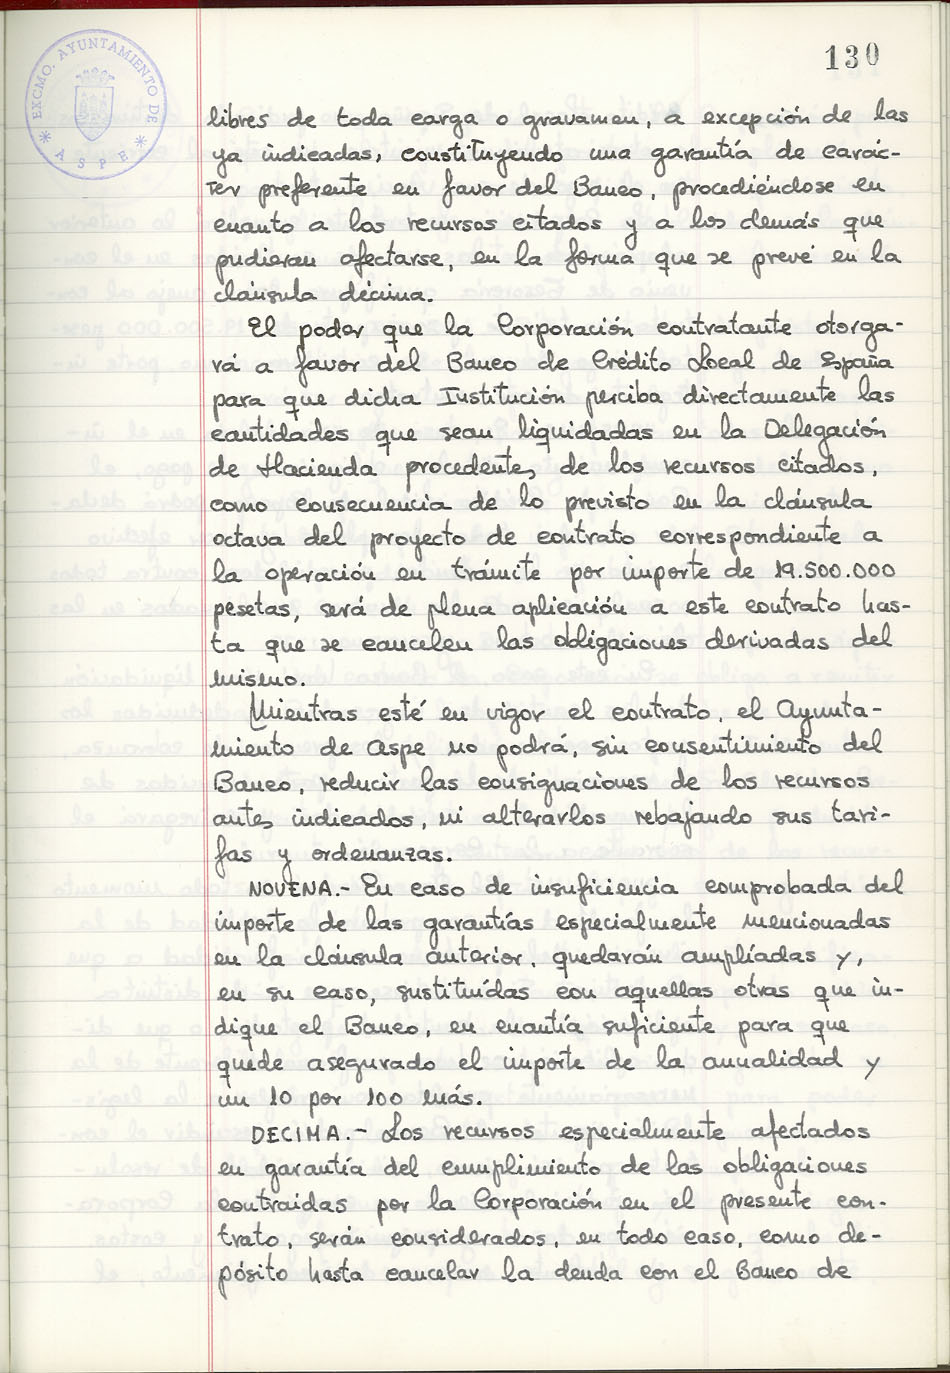 EXCMO. AYUNTAMIENTO DE
* ASPE *
130
libres de toda carga o gravamen, a excepción de las
ya indicadas, constituyendo una garantía de carác-
ter preferente en favor del Banco, procediéndose en
cuanto a los recursos citados y a los demás que
pudieran afectarse, en la forma que se prevé en la
cláusula décima.
El poder que la Corporación contratante otorga-
rá a favor del Banco de Crédito Local de España
para que dicha Institución perciba directamente las
cantidades que sean liquidadas en la Delegación
de Hacienda procedentes de los recursos citados,
como consecuencia de lo previsto en la cláusula
octava del proyecto de contrato correspondiente a
la operación en trámite por importe de 19.500.000
pesetas, será de plena aplicación a este contrato has-
ta que se cancelen las obligaciones derivadas del
mismo.
Mientras esté en vigor el contrato, el Ayunta-
miento de Aspe no podrá, sin consentimiento del
Banco, reducir las consignaciones de los recursos
antes indicados, ni alterarlos rebajando sus tari-
fas y ordenanzas.
NOVENA.- En caso de insuficiencia comprobada del
importe de las garantías especialmente mencionadas
en la cláusula anterior, quedarán ampliadas y,
en su caso, sustituídas con aquellas otras que in-
dique el Banco, en cuantía suficiente para que
quede asegurado el importe de la anualidad y
un 10 por 100 más.
DECIMA.- Los recursos especialmente afectados
en garantía del cumplimiento de las obligaciones
contraídas por la Corporación en el presente con-
trato, serán considerados, en todo caso, como de-
pósito hasta cancelar la deuda con el Banco de